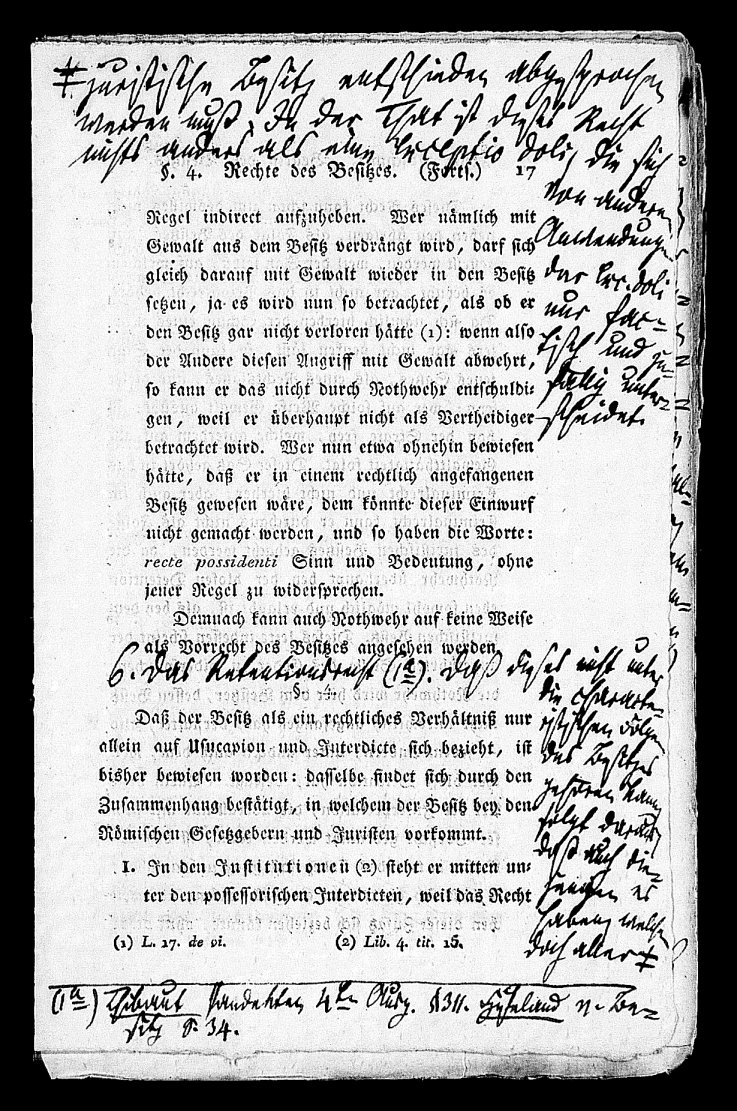 # juristische Besitz entschieden abgesprochen
werden muß. In der That ist dieses Recht
nichts anders als eine Exceptio doli, die sich
von andern
Anwendungen
der Exc. doli
nur fac=
tisch und zu=
fällig unter=
scheidet.
§. 4. Rechte des Besitzes. (Forts.) 17
Regel indirect aufzuheben. Wer nämlich mit
Gewalt aus dem Besitz verdrängt wird, darf sich
gleich darauf mit Gewalt wieder in den Besitz
setzen, ja es wird nun so betrachtet, als ob er
den Besitz gar nicht verloren hätte (1): wenn also
der Andere diesen Angriff mit Gewalt abwehrt,
so kann er das nicht durch Nothwehr entschuldi=
gen, weil er überhaupt nicht als Vertheidiger
betrachtet wird. Wer nun etwa ohnehin bewiesen
hätte, daß er in einem rechtlich angefangenen
Besitz gewesen wäre, dem könnte dieser Einwurf
nicht gemacht werden, und so haben die Worte:
recte possidenti Sinn und Bedeutung, ohne
jener Regel zu widersprechen.
Demnach kann auch Nothwehr auf keine Weise
als Vorrecht des Besitzes angesehen werden
6. Das Retentionsrecht (1a). Daß dieses nicht unter
die charakte=
ristischen Folgen
des Besitzes
gehören kann,
folgt daraus,
daß auch die=
jenigen es
haben, welchen
doch aller #
§ 4.
Daß der Besitz als ein rechtliches Verhältniß nur
allein auf Usucapion und Interdicte sich bezieht, ist
bisher bewiesen worden: dasselbe findet sich durch den
Zusammenhang bestätigt, in welchem der Besitz bey den
Römischen Gesetzgebern und Juristen vorkommt.
1. In den Institutionen (2) steht er mitten un=
ter den possessorischen Interdicten, weil das Recht
(1) L. 17. de vi. (2) Lib. 4. tit. 15.
(1a) Thibaut Pandekten 4te Ausg. § 311. Hufeland v. Be=
sitz S. 34.